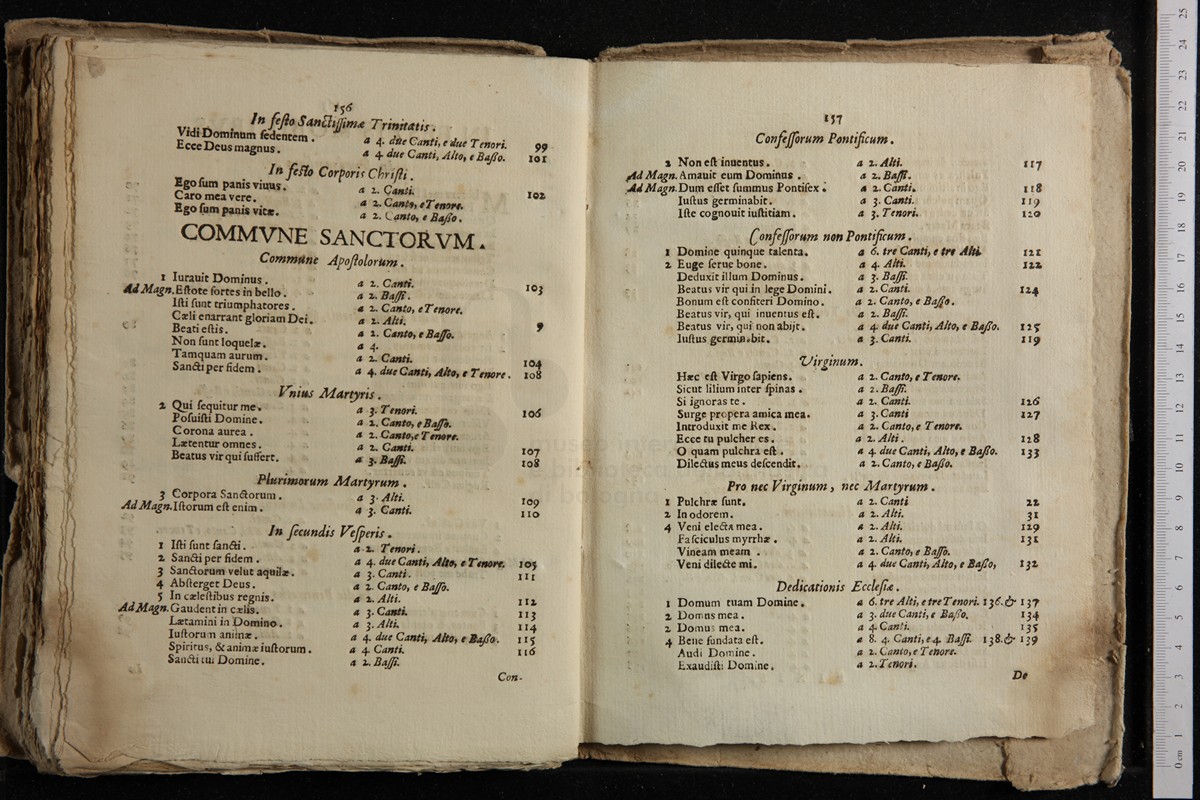 156
In festo Sanctissimæ Trinitatis.
Vidi Dominum sedentem. a 4. due Canti, e due Tenori. 99
Ecce Deus magnus. a 4. due Canti, Alto, e Basso. 101
In festo Corporis Christi.
Ego sum panis viuus. a 2. Canti. 102
Caro mea vere. a 2. Canto, e Tenore.
Ego sum panis vitæ. a 2. Canto, e Basso.
COMMVNE SANCTORVM.
Commune Apostolorum.
1 Iurauit Dominus. a 2. Canti. 103
Ad Magn. Estote fortes in bello. a 2. Bassi.
Isti sunt triumphatores. a 2. Canto, e Tenore.
Cæli enarrant gloriam Dei. a 2. Alti.
Beati estis. a 2. Canto, e Basso. 9
Non sunt loquelæ. a 4.
Tamquam aurum. a 2. Canti. 104
Sancti per fidem. a 4. due Canti, Alto, e Tenore. 108
Vnius Martyris.
2 Qui sequitur me. a 3. Tenori. 106
Posuisti Domine. a 2. Canto, e Basso.
Corona aurea. a 2. Canto, e Tenore.
Lætentur omnes. a 2. Canti. 107
Beatus vir qui suffert. a 3. Bassi. 108
Plurimorum Martyrum.
3 Corpora Sanctorum. a 3. Alti. 109
Ad Magn. Istorum est enim. a 3. Canti. 110
In secundis Vesperis.
1 Isti sunt sancti. a 2. Tenori.
2 Sancti per fidem. a 4. due Canti, Alto, e Tenore. 105
3 Sanctorum velut aquilæ. a 3. Canti. 111
4 Absterget Deus. a 2. Canto, e Basso.
5 In cælestibus regnis. a 2. Alti. 112
Ad Magn. Gaudent in cælis. a 3. Canti. 113
Lætamini in Domino. a 3. Alti. 114
Iustorum animæ. a 4. due Canti, Alto, e Basso. 115
Spiritus, & animæ iustorum. a 4. Canti. 116
Sancti tui Domine. a 2. Bassi.
Con-
157
Confessorum Pontificum.
2 Non est inuentus. a 2. Alti. 117
Ad Magn. Amauit eum Dominus. a 2. Bassi.
Ad Magn. Dum esset summus Pontifex. a 2. Canti. 118
Iustus germinabit. a 3. Canti. 119
Iste cognouit iustitiam. a 3. Tenori. 120
Confessorum non Pontificum.
1 Domine quinque talenta. a 6. tre Canti, e tre Alti. 121
2 Euge serue bone. a 4. Alti. 122
Deduxit illum Dominus. a 3. Bassi.
Beatus vir qui in lege Domini. a 2. Canti. 124
Bonum est confiteri Domino. a 2. Canto, e Basso.
Beatus vir, qui inuentus est. a 2. Bassi.
Beatus vir, qui non abijt. a 4. due Canti, Alto, e Basso. 125
Iustus germinabit. a 3. Canti. 119
Virginum.
Hæc est Virgo sapiens. a 2. Canto, e Tenore.
Sicut lilium inter spinas. a 2. Bassi.
Si ignoras te. a 2. Canti. 126
Surge propera amica mea. a 3. Canti 127
Introduxit me Rex. a 2. Canto, e Tenore.
Ecce tu pulcher es. a 2. Alti. 128
O quam pulchra est. a 4. due Canti, Alto, e Basso. 133
Dilectus meus descendit. a 2. Canto, e Basso.
Pro nec Virginum, nec Martyrum.
1 Pulchræ sunt. a 2. Canti 22
2 In odorem. a 2. Alti. 31
4 Veni electa mea. a 2. Alti. 129
Fasciculus myrrhæ. a 2. Alti. 131
Vineam meam. a 2. Canto, e Basso.
Veni dilecte mi. a 4. due Canti, Alto, e Basso, 132
Dedicationis Ecclesiæ.
1 Domum tuam Domine. a 6. tre Alti, e tre Tenori. 136. & 137
2 Domus mea. a 3. due Canti, e Basso. 134
2 Domus mea. a 4. Canti. 135
4 Bene fundata est. a 8. 4. Canti, e 4. Bassi. 138. & 139
Audi Domine. a 2. Canto, e Tenore.
Exaudisti Domine. a 2. Tenori.
De